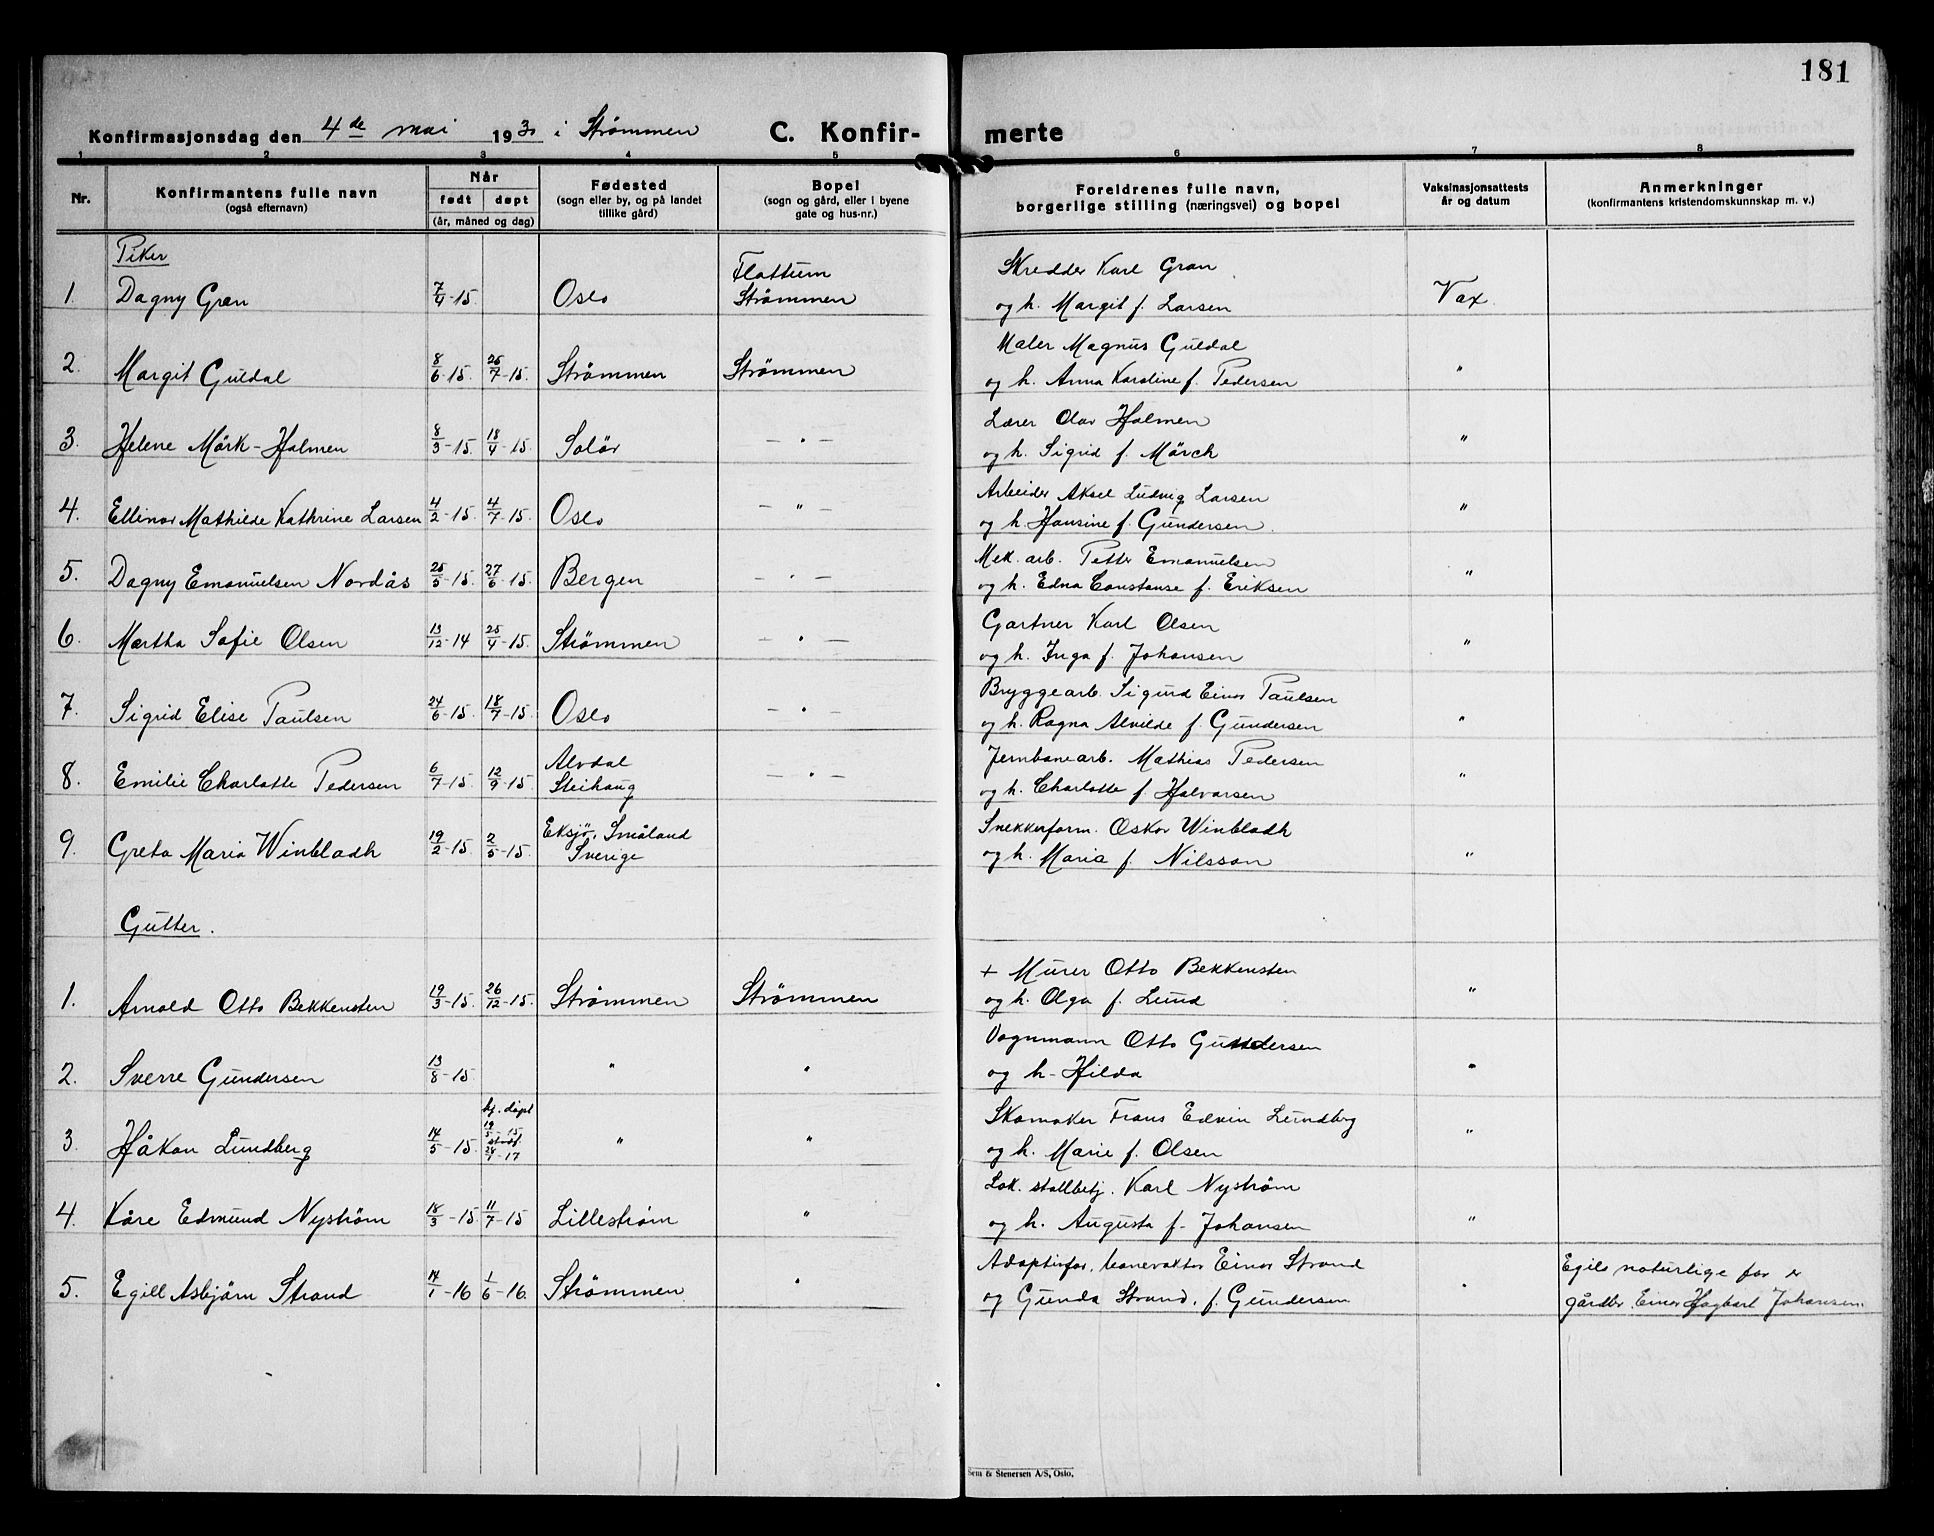 181
Konfirmasjonsdag den 4de mai 1930 i Strømmen C. Konfir- merte
1 2 3 4 5 6 7 8
Nr.
Konfirmantens fulle navn
(også efternavn)
Når
født døpt
(år, måned og dag)
Fødested
(sogn eller by, og på landet
tillike gård)
Bopel
(sogn og gård, eller i byene
gate og hus-nr.)
Foreldrenes fulle navn,
borgerlige stilling (næringsvei) og bopel
Vaksinasjonsattests
år og datum
Anmerkninger
(konfirmantens kristendomskunnskap m. v.)
Piker
Flattum Skredder Karl Gran
1. Dagny Gran 7/4-15 Oslo Strømmen og h. Margit f. Larsen Vax.
Maler Magnus Guldal
2. Margit Guldal 8/6-15. 25/7-15. Strømmen Strømmen og h. Anna Karoline f. Pedersen "
Lærer Olav Holmen
3. Helene Mörk-Holmen 8/3-15. 18/4-15. Solör — " — og h. Sigrid f. Mörch "
Arbeider Aksel Ludvig Larsen
4. Ellinor Mathilde Kathrine Larsen 4/2-15. 4/7-15. Oslo — " — og h. Hansine f. Gundersen "
Mek. arb. Petter Emanuelsen
5. Dagny Emanuelsen Nordås 25/5-15. 27/6-15. Bergen — " — og h. Edna Constanse f. Eriksen "
Gartner Karl Olsen
6. Martha Sofie Olsen 13/12-14 25/4-15. Strömmen — " — og h. Inga f. Johansen "
Bryggearb. Sigurd Einar Paulsen
7. Sigrid Elise Paulsen 24/6-15. 18/7-15. Oslo — " — og h. Ragna Alvilde f. Gundersen "
Alvdal Jernbanearb. Mathias Pedersen
8. Emilie Charlotte Pedersen 6/7-15. 12/9-15. Steihaug — " — og h. Charlotte f. Halvorsen "
Eksjö, Småland Snekkerform. Oskar Winbladh
9. Greta Maria Winbladh 19/2-15. 2/5-15. Sverige og h. Maria f. Nilsson "
Gutter.
+ Murer Otto Bekkensten
1. Arnold Otto Bekkensten 19/3-15. 26/12-15. Strømmen Strømmen og h. Olga f. Lund "
Vognmann Otto Gundersen
2. Sverre Gundersen 13/8-15 " " og h- Hilda "
hj. døpt Skomaker Frans Edvin Lundberg
19/5-15
3. Håkon Lundberg 14/5-15. " " og h. Marie f. Olsen "
Lok. stallbetj. Karl Nyström
4. Kåre Edmund Nystrøm 18/3-15. 11/7-15 Lillestrøm " og h. Augusta f. Johansen "
Adoptivfor. banevokter Einar Strand Egils naturlige far er
5. Egill Asbjørn Strand 14/1-16 1/6-16. Strømmen " og Gunda Strand, f. Gundersen " gårdbr. Einar Hagbart Johansen.
Sem & Stenersen A/S, Oslo.